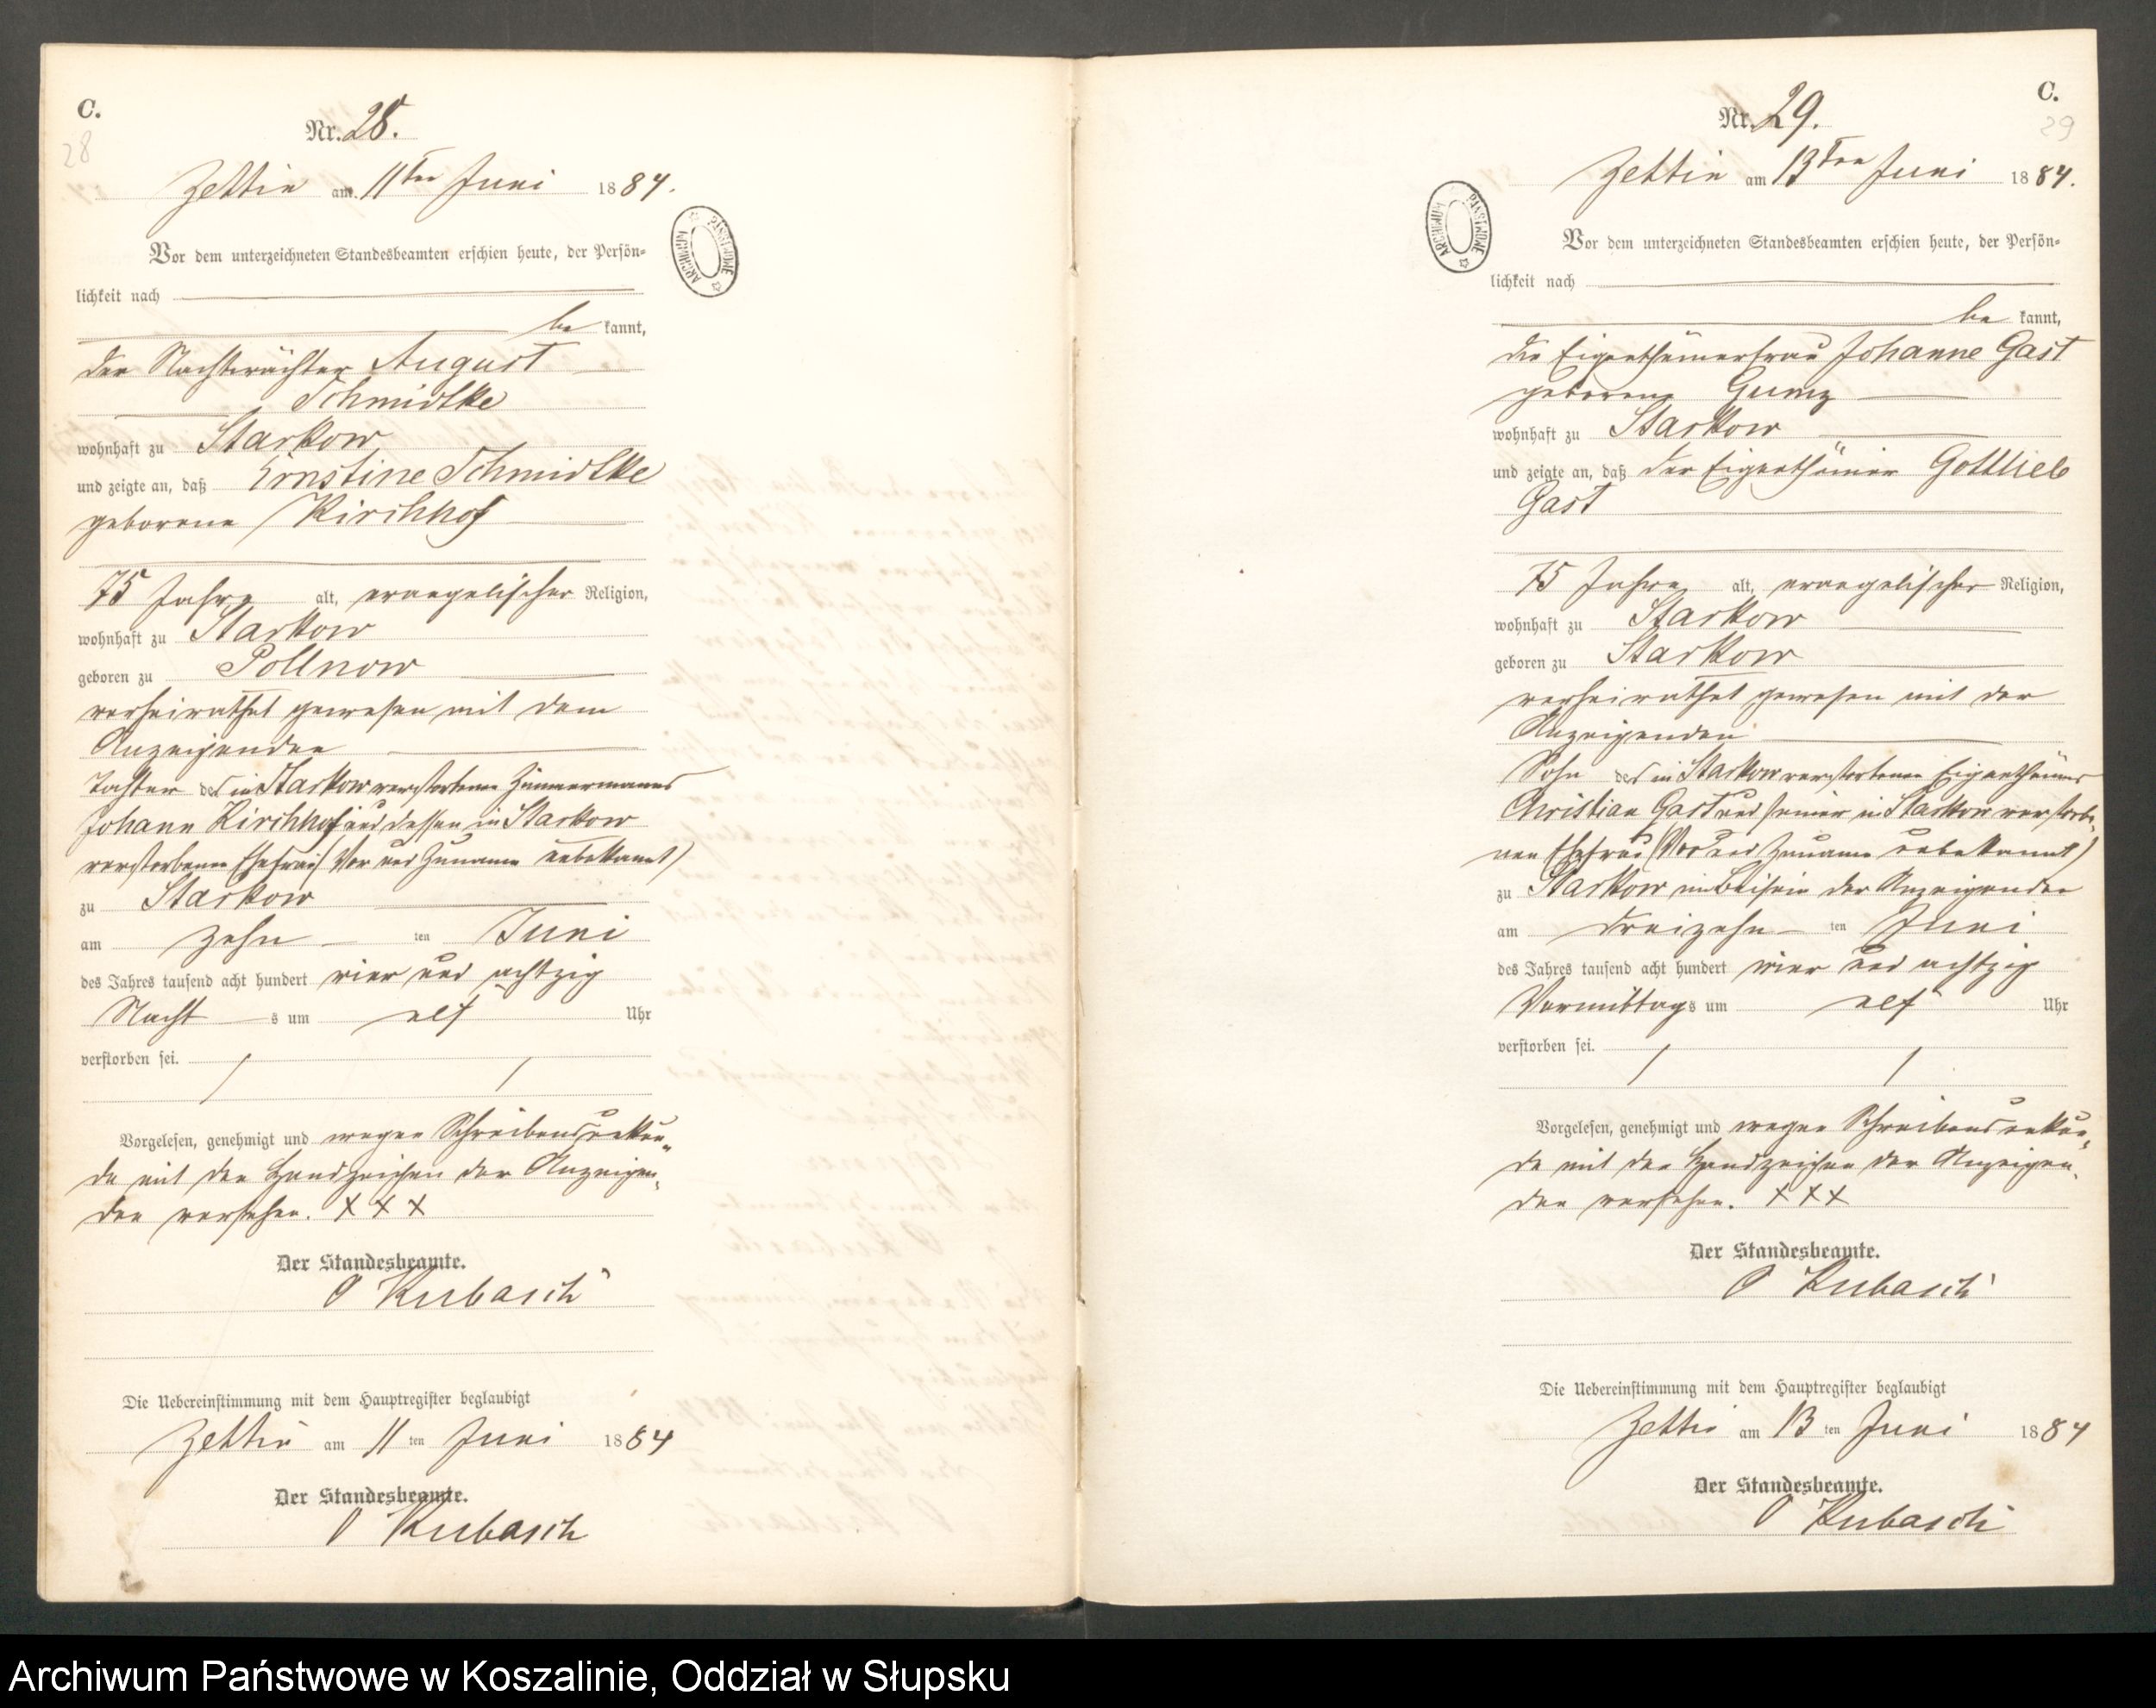 C.
28
Nr. 28.
Zettin am 11ten Juni 1884.
Vor dem unterzeichneten Standesbeamten erschien heute, der Persön-
lichkeit nach
be kannt,
der Nachtwächter August
Schmidtke
wohnhaft zu Starkow
und zeigte an, daß Ernstine Schmidtke
geborene Kirchhof
75 Jahre alt, evangelischer Religion,
wohnhaft zu Starkow
geboren zu Pollnow
verheirathet gewesen mit dem
Anzeigenden
Tochter des in Starkow verstorbenen Zimmermanns
Johann Kirchhof und dessen in Starkow
verstorbenen Ehefrau (Vor und Zuname unbekannt)
zu Starkow
am zehn ten Juni
des Jahres tausend acht hundert vier und achtzig
Nacht s um elf Uhr
verstorben sei.
Vorgelesen, genehmigt und wegen Schreibensunkun-
de mit den Handzeichen der Anzeigen-
den versehen. + + +
Der Standesbeamte.
O Kubasch
Die Uebereinstimmung mit dem Hauptregister beglaubigt
Zettin am 11 ten Juni 1884
Der Standesbeamte.
O Kubasch
ARCHIWUM PAŃSTWOWE
C.
29
Nr. 29.
Zettin am 13ten Juni 1884.
Vor dem unterzeichneten Standesbeamten erschien heute, der Persön-
lichkeit nach
be kannt,
die Eigenthümerfrau Johanne Gast
geborene Gumz
wohnhaft zu Starkow
und zeigte an, daß der Eigenthümer Gottlieb
Gast
75 Jahre alt, evangelischer Religion,
wohnhaft zu Starkow
geboren zu Starkow
verheirathet gewesen mit der
Anzeigenden
Sohn des in Starkow verstorbenen Eigenthümers
Christian Gast und seiner in Starkow verstorbe-
nen Ehefrau (Vor und Zuname unbekannt)
zu Starkow im Beisein der Anzeigenden
am dreizehn ten Juni
des Jahres tausend acht hundert vier und achtzig
Vormittags um elf Uhr
verstorben sei.
Vorgelesen, genehmigt und wegen Schreibensunkun-
de mit den Handzeichen der Anzeigen-
den versehen. + + +
Der Standesbeamte.
O Kubasch
Die Uebereinstimmung mit dem Hauptregister beglaubigt
Zettin am 13 ten Juni 1884
Der Standesbeamte.
O Kubasch
ARCHIWUM PAŃSTWOWE
Archiwum Państwowe w Koszalinie, Oddział w Słupsku